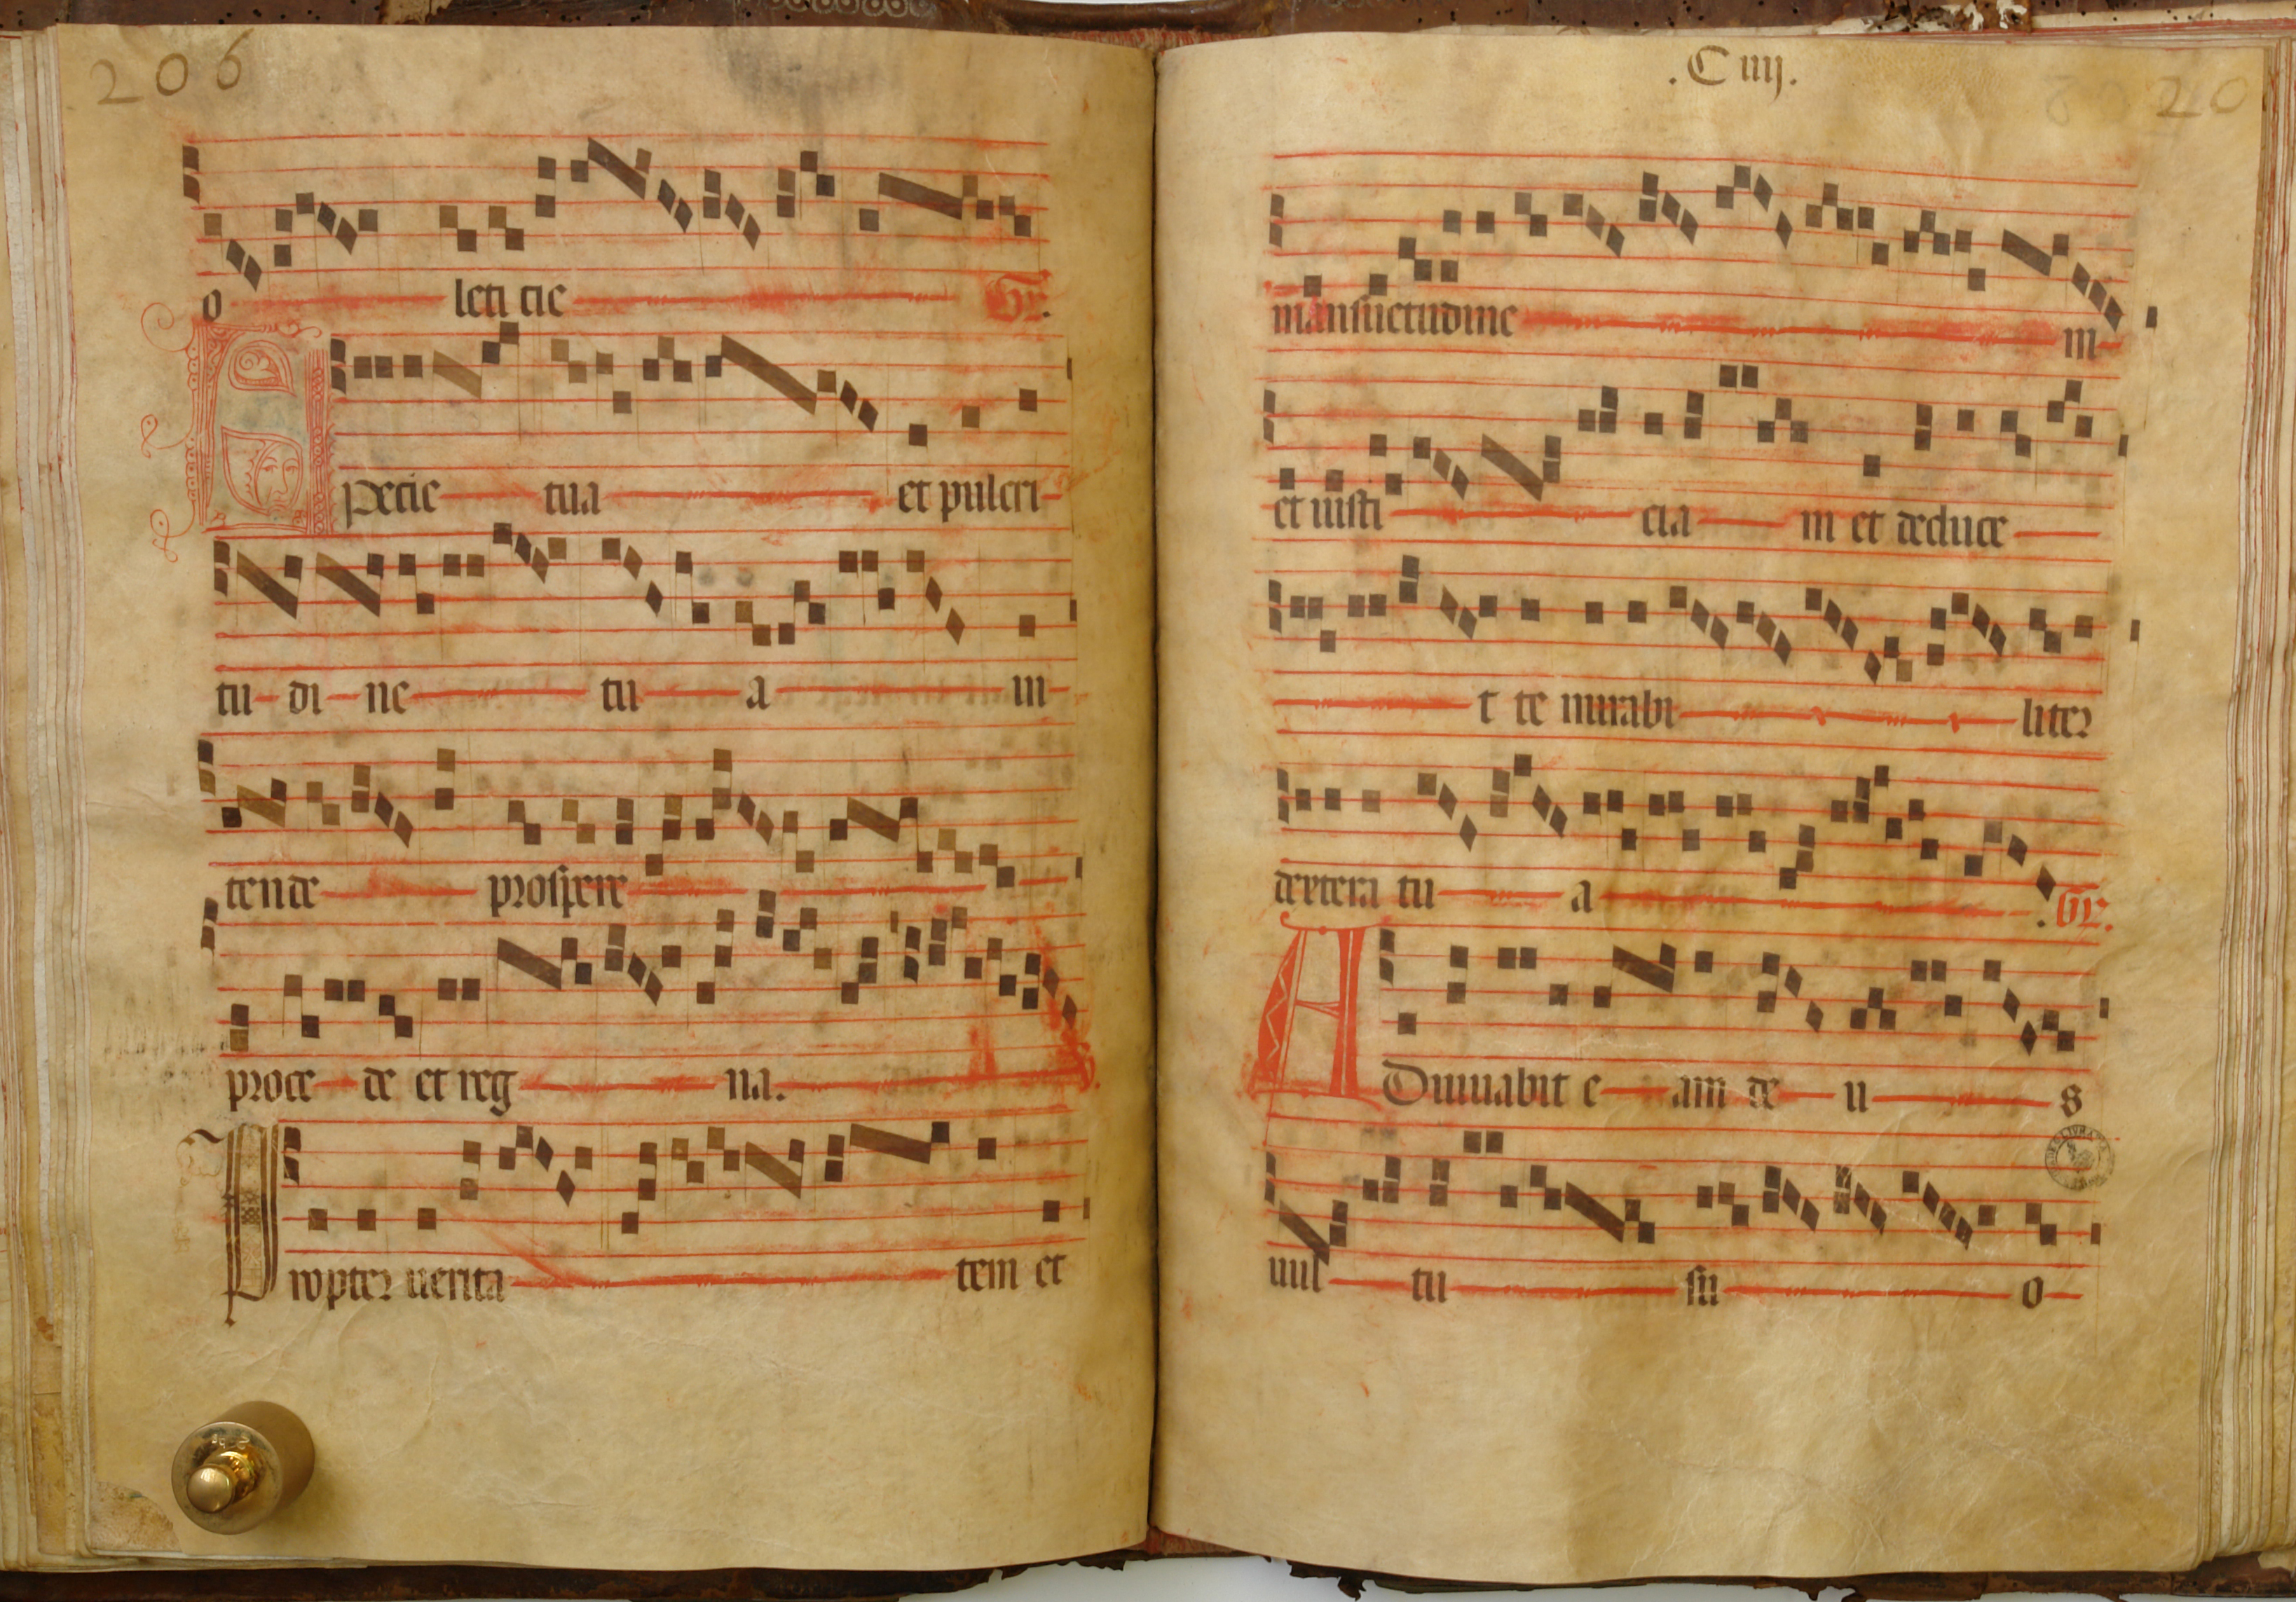 206
o leti cie Gr.
Specie tua et pulcri
tu di ne tu a in
tende prospere
proce de et reg na. V.
Propter uerita tem et
.C iiij.
mansuetudine m
et iusti cia m et deduce
t te mirabi liter
dextera tu a . Gr.
ADiuuabit e am de u s
uul tu su o